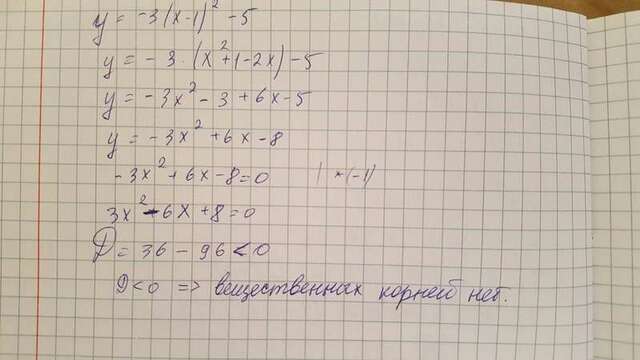 y = -3(x-1)² -5
y = -3·(x²+1-2x)-5
y = -3x² - 3 + 6x - 5
y = -3x² + 6x - 8
-3x² + 6x - 8 = 0 | *(-1)
3x² - 6x + 8 = 0
D = 36 - 96 < 0
D < 0 => вещественных корней нет.